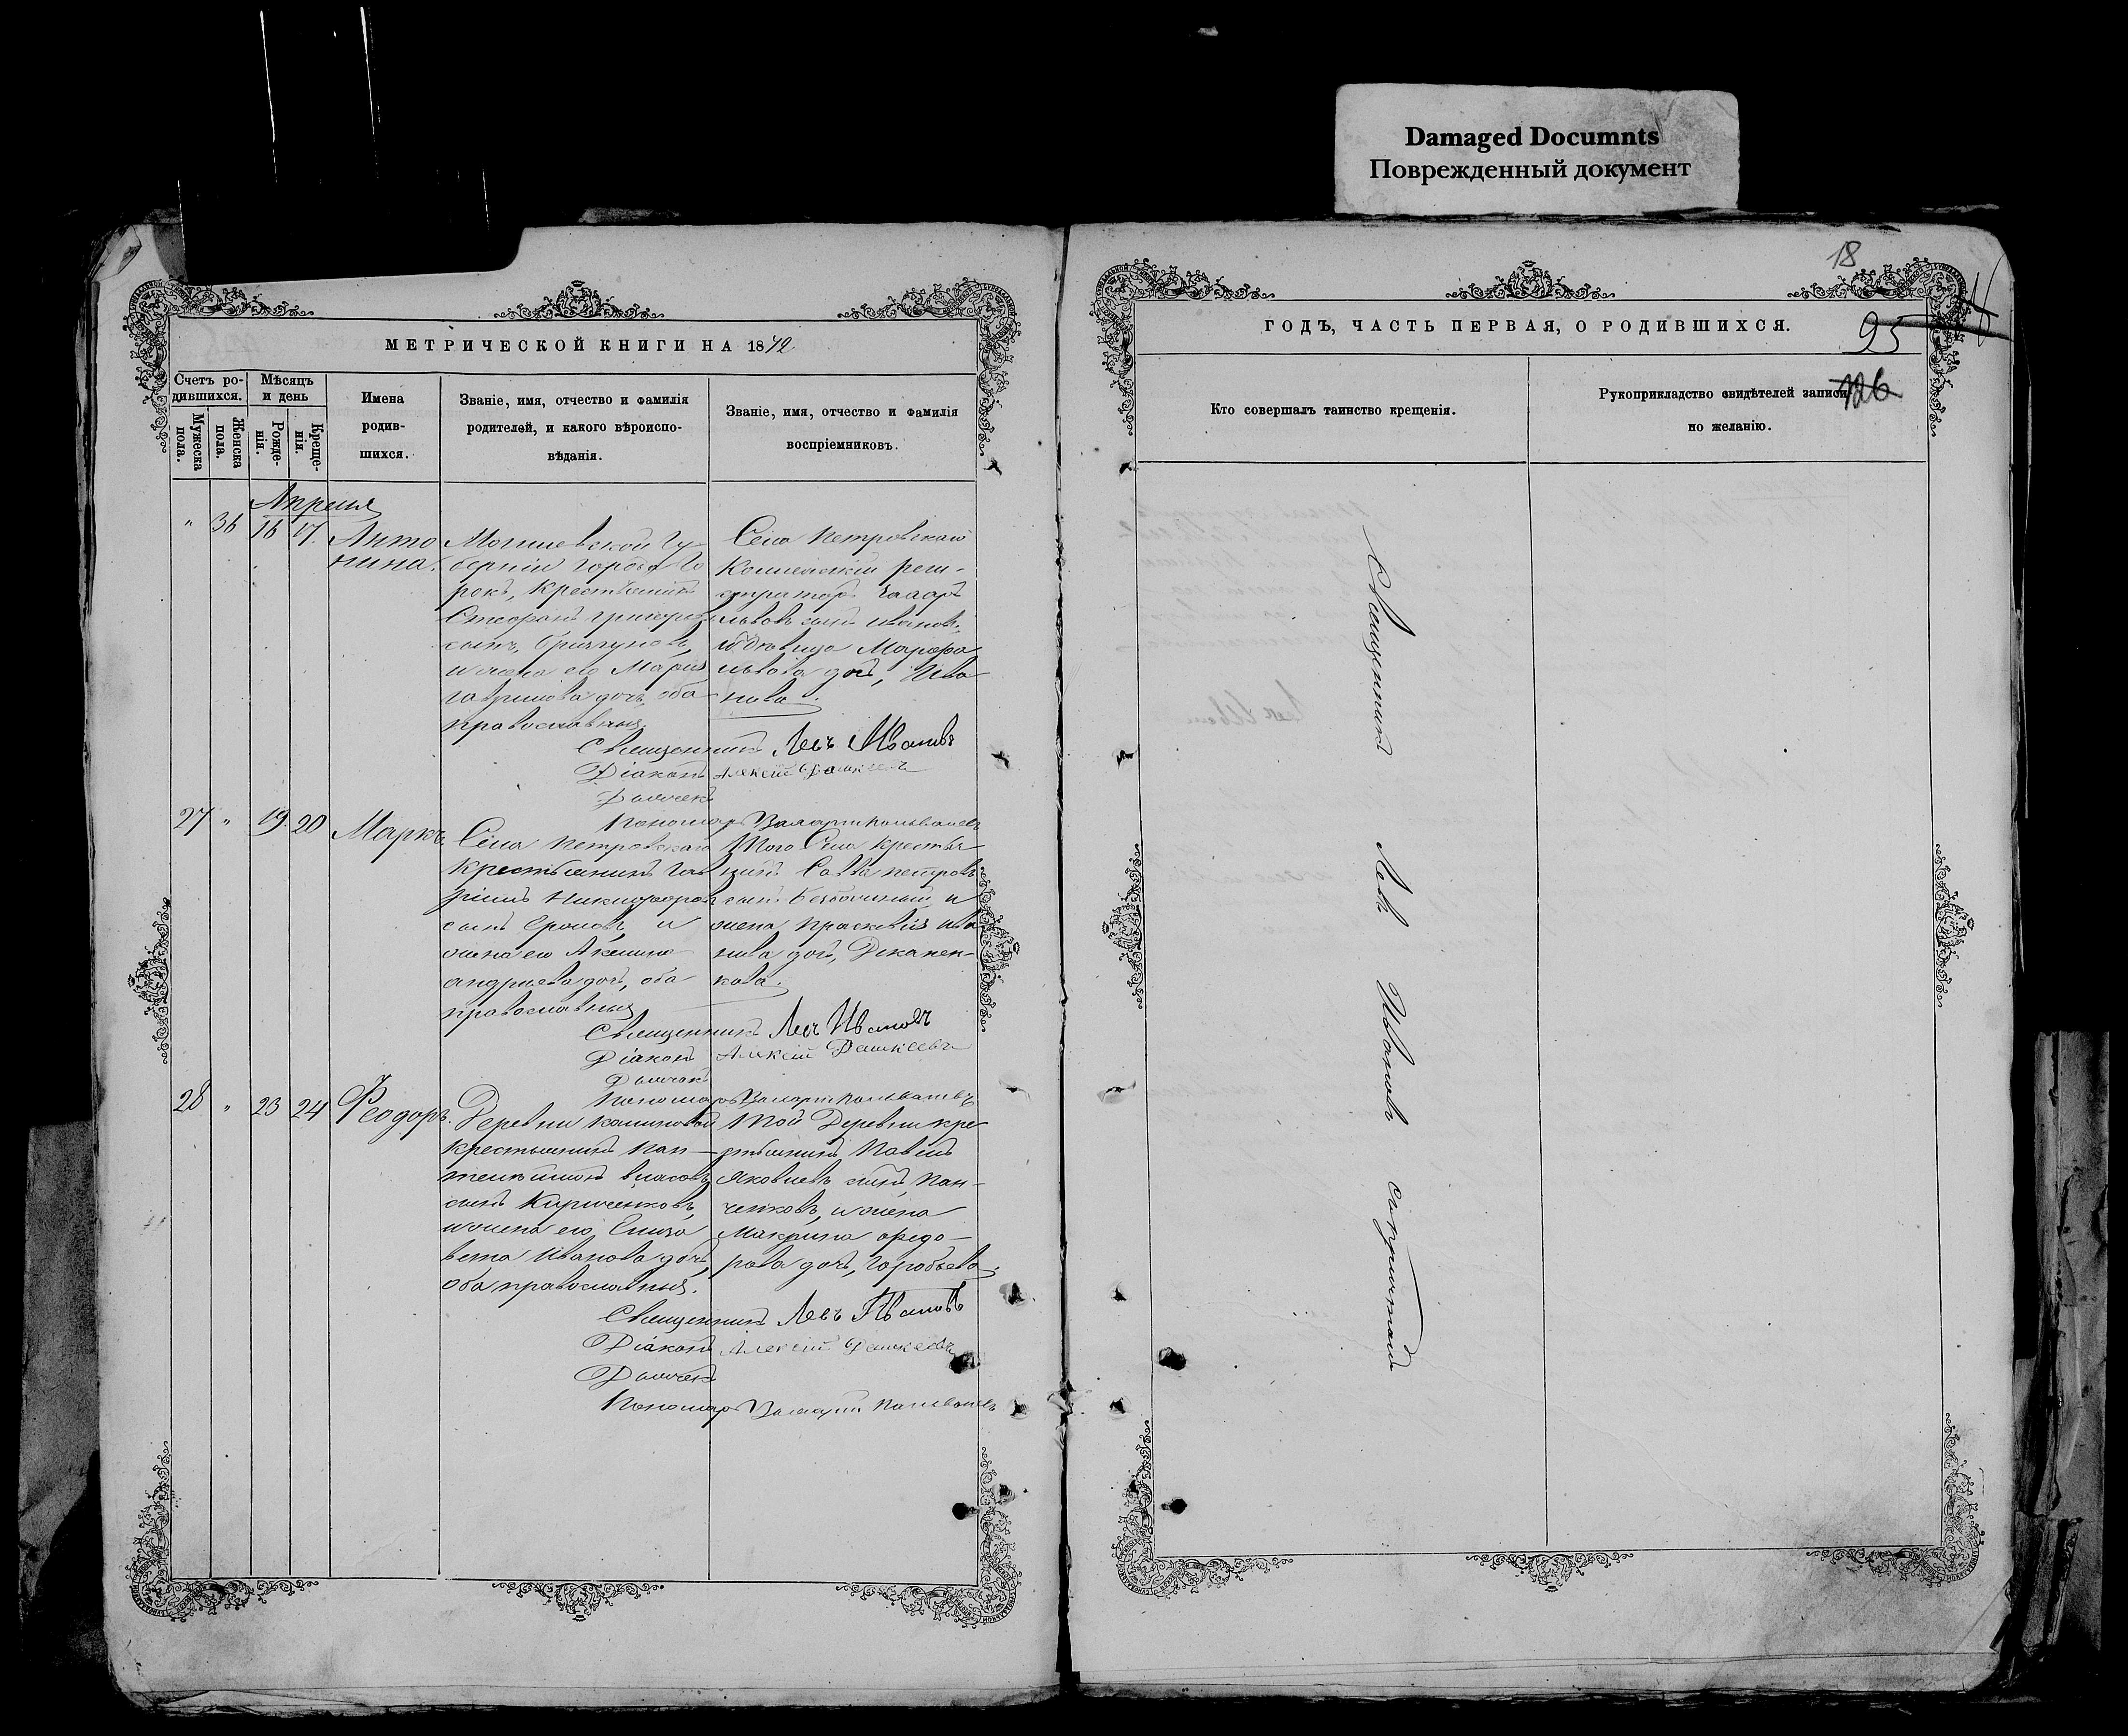 Damaged Documnts
Поврежденный документ
МЕТРИЧЕСКОЙ КНИГИ НА 1872
Счетъ ро-
дившихся.
Мужеска
пола.
Женска
пола.
Мѣсяцъ
и день
Рожде-
нія.
Креще-
нія.
Имена
родив-
шихся.
Званіе, имя, отчество и фамилія
родителей, и какого вѣроиспо-
вѣданія.
Званіе, имя, отчество и фамилія
воспріемниковъ.
Апрѣля
" 36 16 17.
Анто
нина.
Могилевской Гу-
берніи города Го
рокъ, крестьянинъ
Стефанъ Григорьевъ
сынъ,
и жена его Марія
Гавриилова дочь, оба
православныя.
Села Петровскаго
Коллежскій реги-
страторъ
Львовъ сынъ Ивановъ,
и дѣвица Марфа
Львова дочь, Ива
нова.
Священникъ Левъ Ивановъ
Діаконъ Алексій Дашкеевъ
Дьячекъ
Пономарь Валерій
27 " 19. 20
Маркъ.
Села Петровскаго
крестьянинъ Гав
ріилъ Никифоровъ
сынъ и
жена его Акилина
Андреева дочь, оба
православныя
Того Села крестья
нинъ Савва Петровъ
сынъ и
жена Прасковія Ива
нова дочь,
кова.
Священникъ Левъ Ивановъ
Діаконъ Алексій Дашкеевъ
Дьячекъ
Пономарь Валерій
28 " 23 24
Феодоръ.
Деревни
крестьянинъ Пан-
телеимонъ Власовъ
сынъ Кириченковъ,
и жена его Елиза
вета Иванова дочь,
оба православныя.
Той Деревни кре
стьянинъ Павелъ
Яковлевъ сынъ, Пан-
ченковъ, и жена
Макрина Федо-
рова дочь, Горобьева.
Священникъ Левъ Ивановъ
Діаконъ Алексій Дашкеевъ
Дьячекъ
Пономарь Валерій
18
ГОДЪ, ЧАСТЬ ПЕРВАЯ, О РОДИВШИХСЯ.
95
126
Кто совершалъ таинство крещенія.
Рукоприкладство свидѣтелей записи
по желанію.
Священникъ Левъ Ивановъ